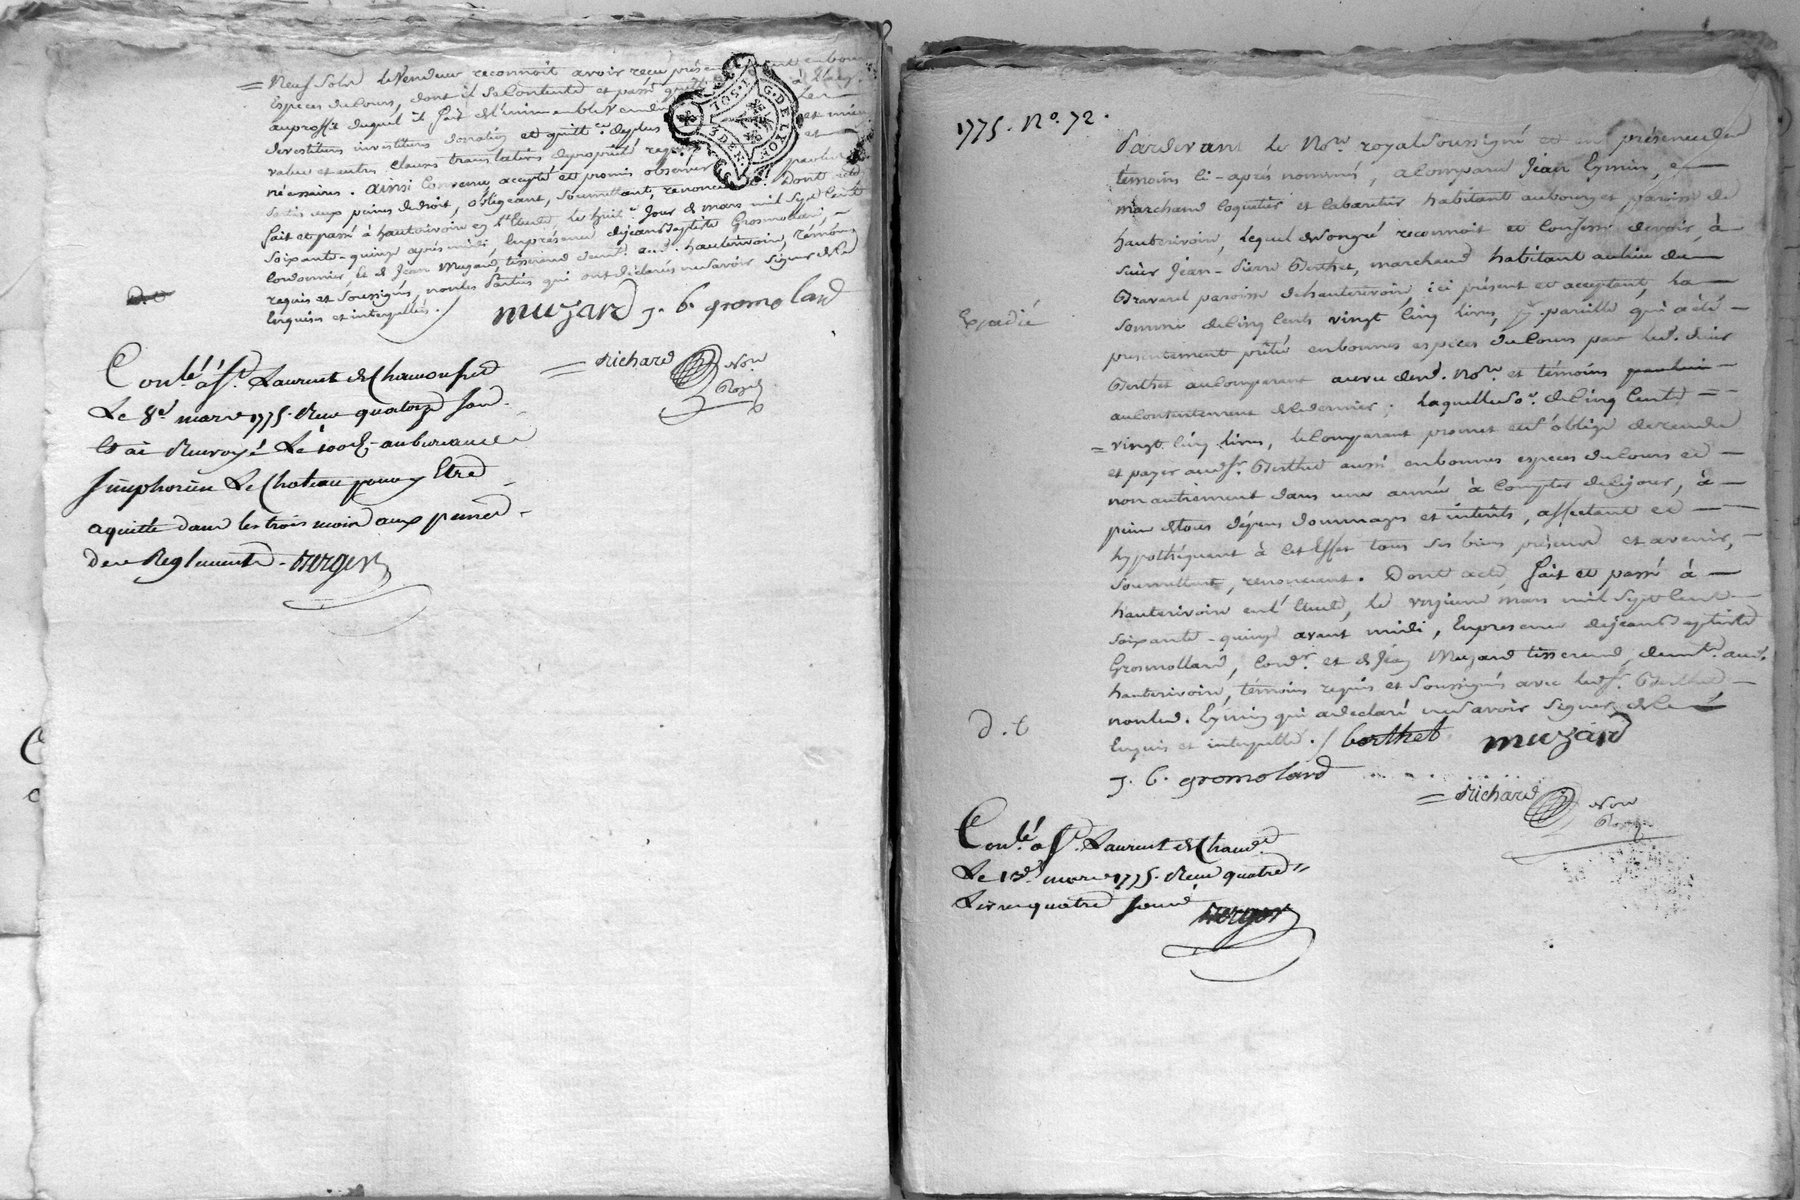 = Neuf sols Le vendeur reconnoit avoir recu
Especes du cours, dont il se contente et passé
au proffit duquel il fait de l'immeuble vendu
devestiture investiture donation et quitt.ce de plus
value et autres clauses translatives de propriété
nécessaires. Ainsi convenu, accepté et promis observer
obligeant, soumettant, renonceant. Dont acte
fait et passé à hauterivoire en l'Etude le huit.e jour de mars mil sept cent
soixante-quinze après midi, En présence de jean Baptiste Grosmolard,
Cordonnier et de Jean Muzard, tisserand dem.ts aud. hauterivoire, témoins
requis et soussignés, non les parties qui ont déclarés ne savoir signer de ce
Enquises et interpellées. /
G. DE LYON
1. SOL.
3 DEN.
muzard J. B. gromolard
= Richard Nore
Royal
D. C
Con.lé à St. Laurent de Chamousset
Le 8e mars 1775. Reçu quatorze sous
Et ai Renvoyé Le 100e au bureau de
Simphorien Le Chateau pour y Etre
aquitté dans les trois mois aux peines
des Reglements. Berger
1775. No. 72.
Pardevant Le Nore. royal soussigné et en présence des
témoins ci-après nommés, a comparu Jean Eymin,
marchand coquetier et cabaretier habitant au bourg et paroisse de
hauterivoire, lequel de son gré reconnoit et confesse devoir, à
sieur Jean-Pierre Berthet, marchand habitant au lieu du
Bravard paroisse de hauterivoire, ici présent et acceptant, la
Expedié
somme de cinq cents vingt cinq livres, pareille qui a été
presentement prêtée en bonnes espèces du cours par led. sieur
Berthet au comparant au vu dud. Nore. et témoins
au contentement de ce dernier; laquelle so.e de cinq cents =
= vingt cinq livres, le comparant promet et s'oblige de rendre
et payer aud. sr. Berthet aussi en bonnes especes du cours et
non autrement dans une année à compter de ce jour, à
peine de tous dépens dommages et intérêts, affectant et
hypothéquant à cet Effet tous ses biens présents et avenir,
soumettant, renonceant. Dont acte, fait et passé à
hauterivoire en l'Etude, le onzieme mars mil sept cent
soixante-quinze avant midi, En presence de jean Baptiste
Grosmollard, Cord.r et de Jean Muzard tisserand, dem.ts aud.
hauterivoire, témoins requis et soussignés avec led. sr. Berthet
non led. Eymin qui a declaré ne savoir signer de ce
D. C
Enquis et interpellé. / berthet muzard
J. B. gromolard
= Richard Nore
Royal
Con.lé à St. Laurent de Cham.t
Le 13e mars 1775. Reçu quatre
Livres quatre sous
Berger